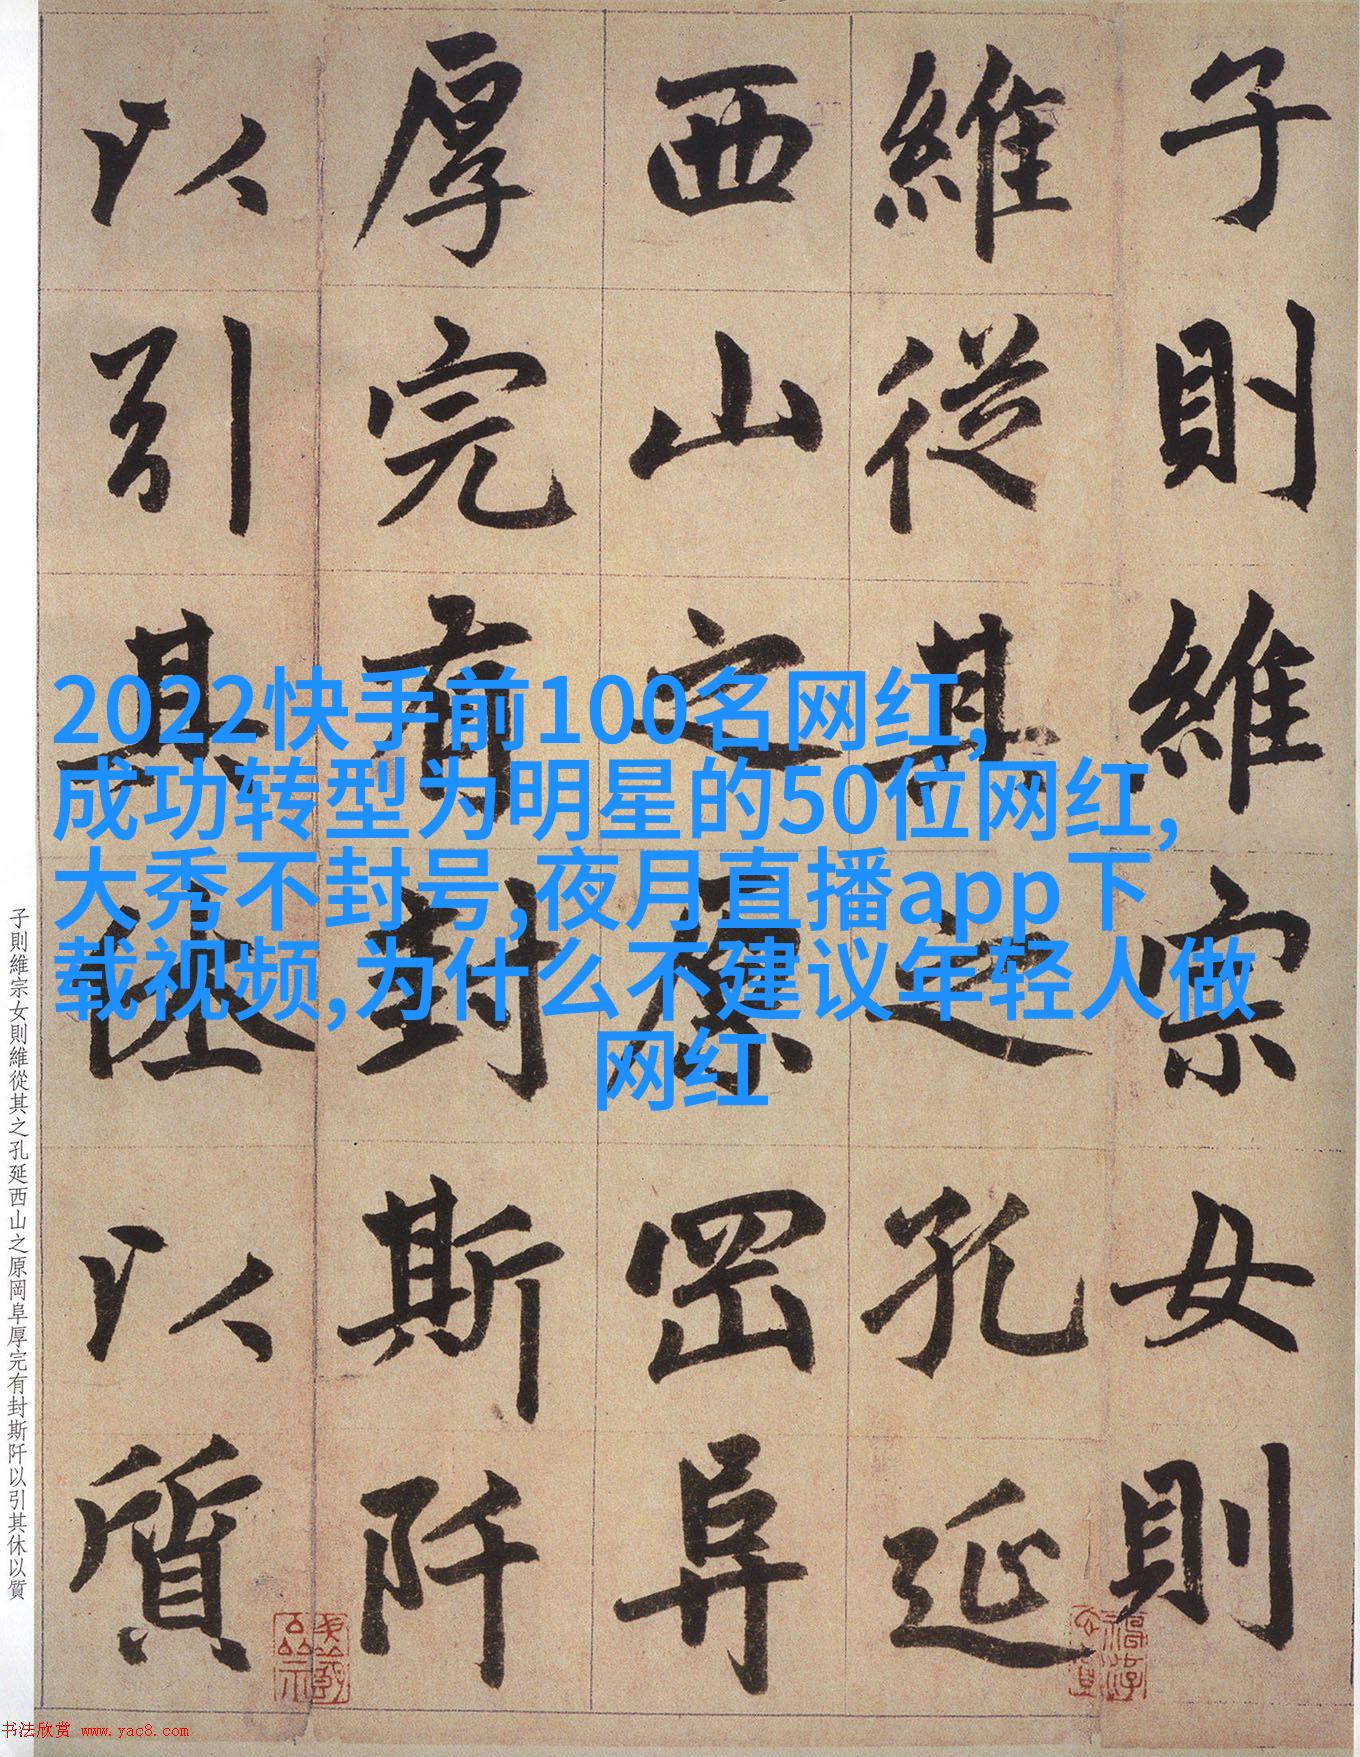 子則維宗女則
維從其之孔延
西山之原岡阜
厚完有封斯阡
以引其休以質
2022快手前100名网红,
成功转型为明星的50位网红,
大秀不封号,夜月直播app下
载视频,为什么不建议年轻人做
网红
子則維宗女則維從其之孔延西山之原岡阜厚完有封斯阡以引其休以質
书法欣赏 www.yac8.com